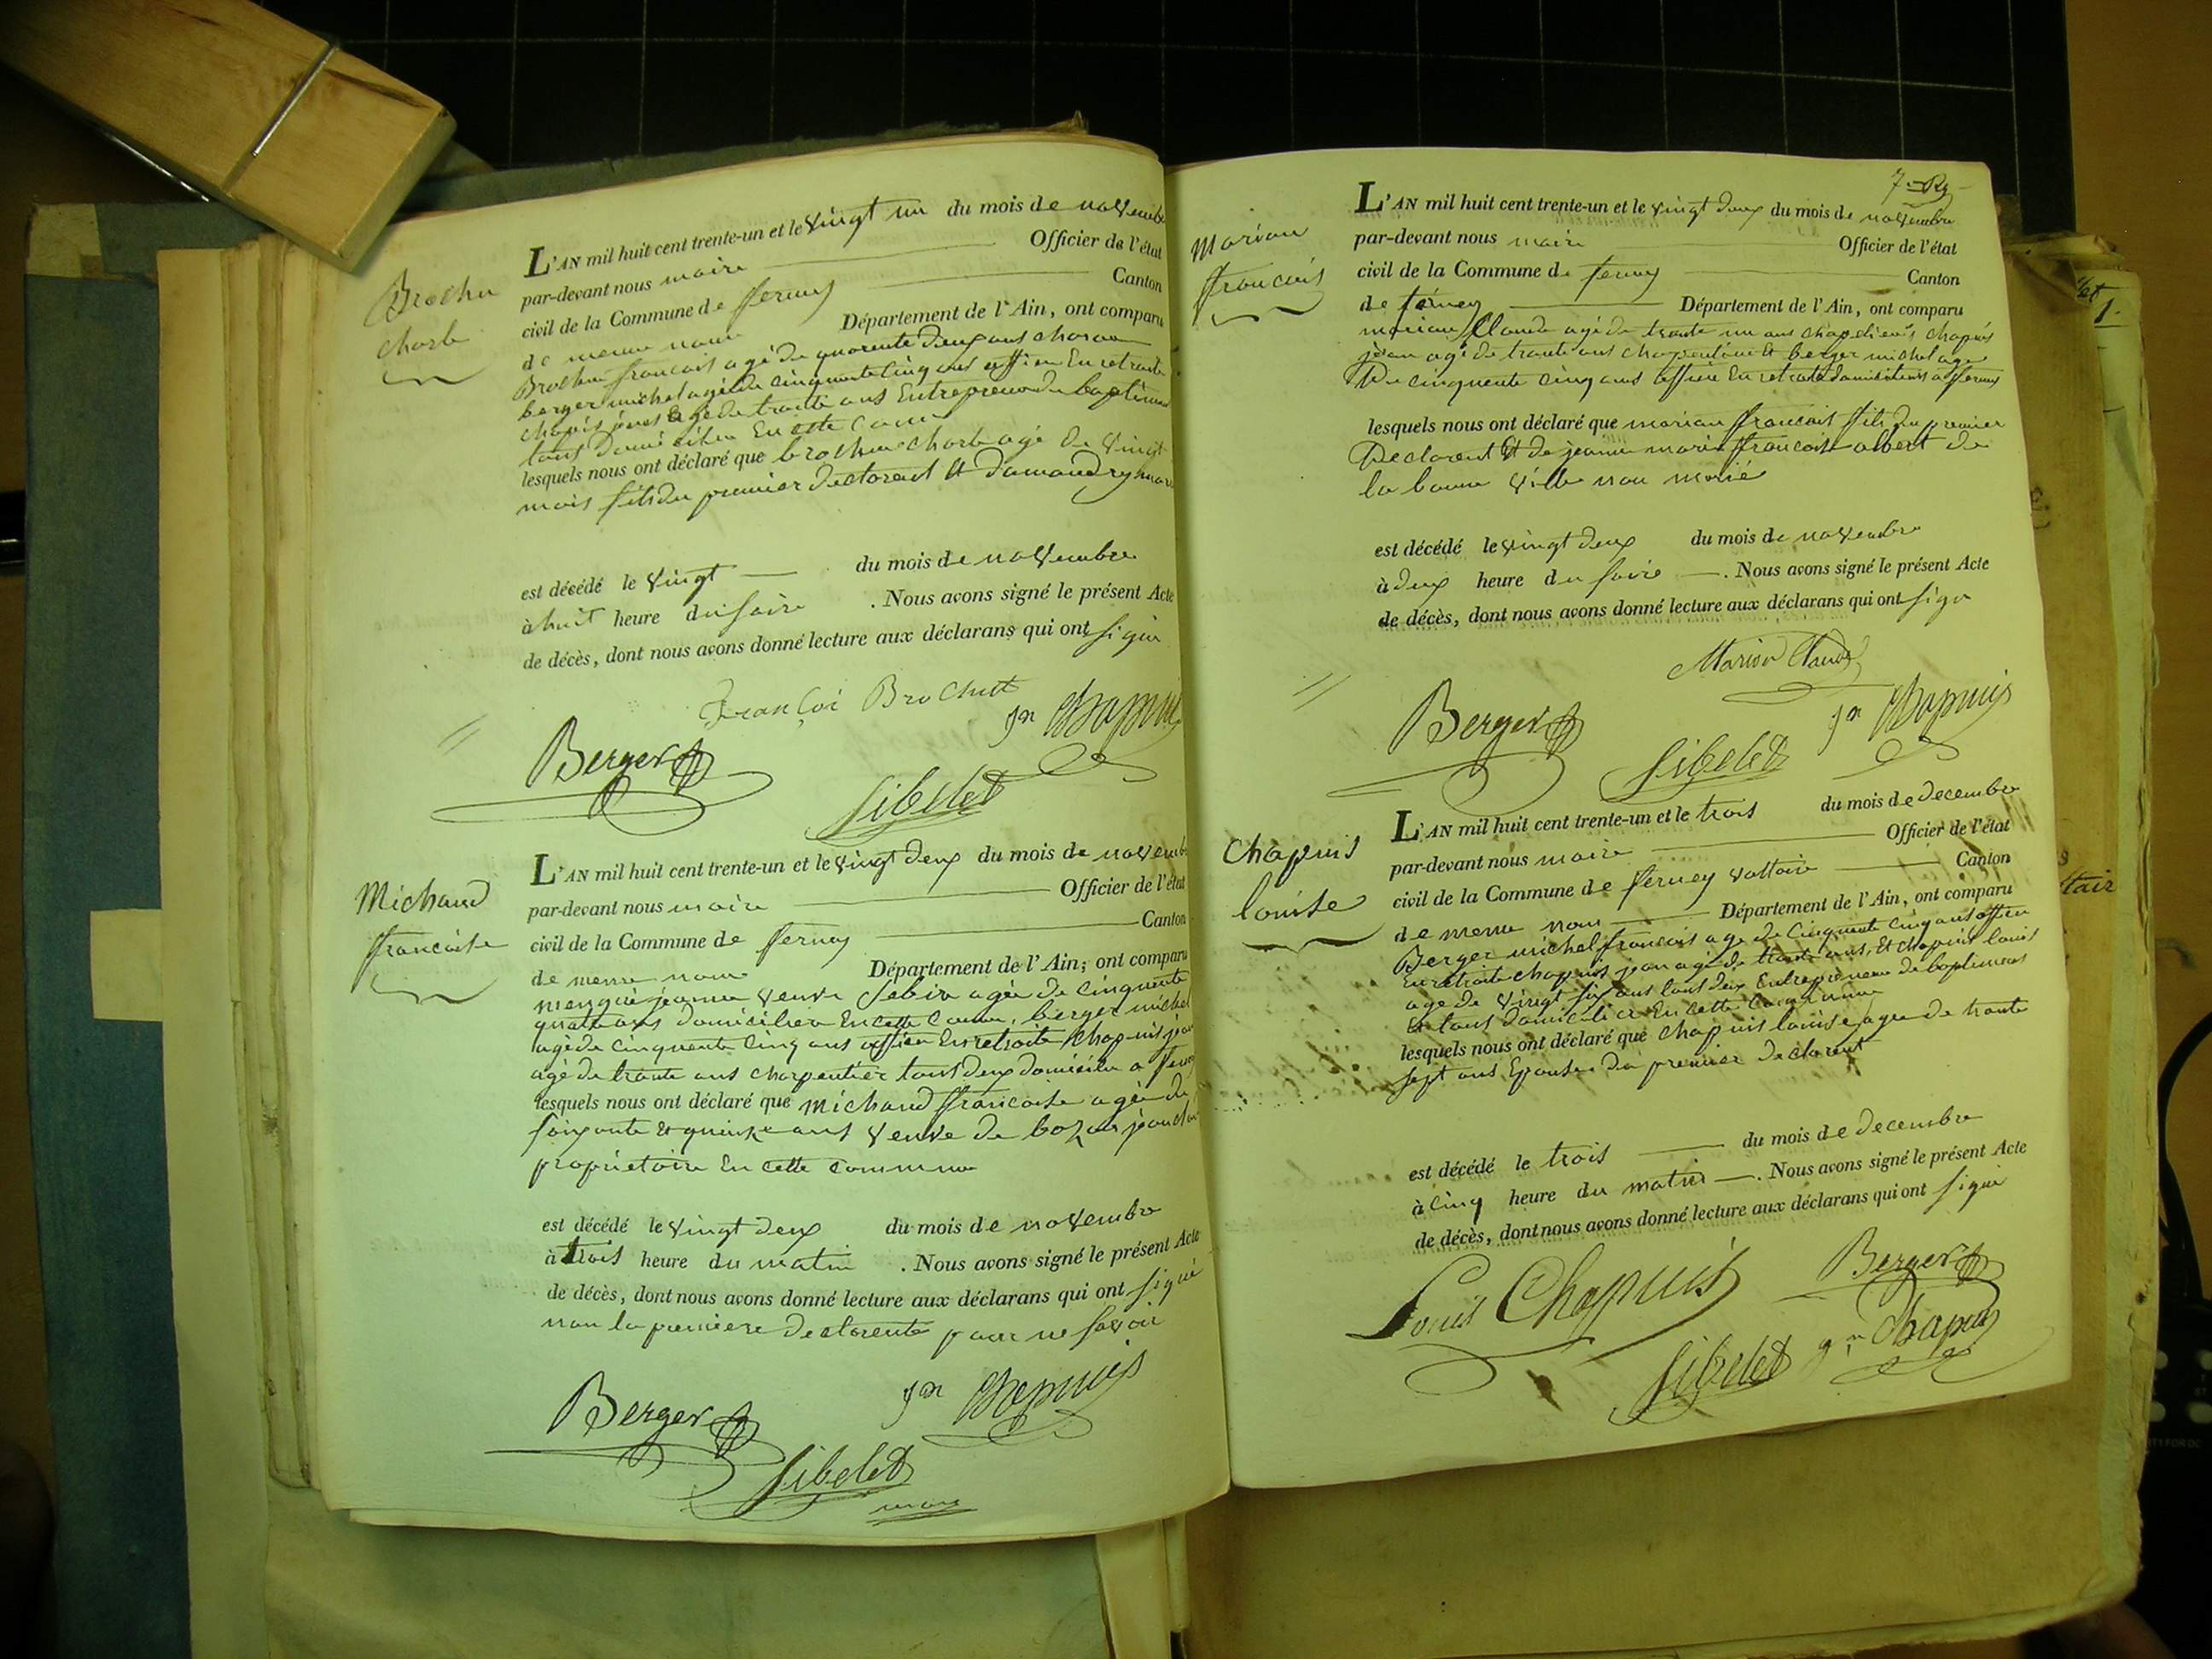 Brochu
Charle
L'AN mil huit cent trente-un et le vingt un du mois de novembre
par-devant nous maire Officier de l'état
civil de la Commune de ferney Canton
de meme nom Département de l'Ain, ont comparu
Brochu francois agé de quarente deux ans
berger michel agé de cinquente cinq ans officier En retraite
agé de trante ans Entrepreneur de
tous En cette
lesquels nous ont déclaré que brochu charle agé de vingt
mois fils du premier declarent et
est décédé le vingt du mois de novembre
à huit heure du soire . Nous avons signé le présent Acte
de décès, dont nous avons donné lecture aux déclarans qui ont signé
Françoi Brochut
Berger
jn Chapuis
Sibelet
Michaud
francoise
L'AN mil huit cent trente-un et le vingt deux du mois de novemb
par-devant nous maire Officier de l'état
civil de la Commune de ferney Canton
de meme nom Département de l'Ain; ont comparu
jeanne veuve agée de cinquente
quatre ans domiciliée En cette berger michel
agé de cinquente cinq ans officier En retraite Chapuis
agé de trante ans charpentier tous deux domicilié a
lesquels nous ont déclaré que Michaud francoise agée de
soixante et quinze ans veuve de
propriétaire En cette commune
est décédé le vingt deux du mois de novembre
à trois heure du matin . Nous avons signé le présent Acte
de décès, dont nous avons donné lecture aux déclarans qui ont signé
non la premiere declarente pour ne savoir
Berger
jn Chapuis
Sibelet
7
Marion
francois
L'AN mil huit cent trente-un et le vingt deux du mois de novembre
par-devant nous maire Officier de l'état
civil de la Commune de ferney Canton
de ferney Département de l'Ain, ont comparu
marion Claude agé de trante un ans chapelier chapuis
jean agé de trante ans et berger michel age
De cinquente cinq ans officier En retraite a ferney
lesquels nous ont déclaré que marion francois fils du premier
Declarent et de jeanne marie albert de
la bonne ville non marié
est décédé le vingt deux du mois de novembre
à deux heure du soire . Nous avons signé le présent Acte
de décès, dont nous avons donné lecture aux déclarans qui ont signé
Marion Claude
Berger
jn Chapuis
Sibelet
Chapuis
louise
L'AN mil huit cent trente-un et le trois du mois de decembre
par-devant nous maire Officier de l'état
civil de la Commune de ferney voltaire Canton
de meme nom Département de l'Ain, ont comparu
Berger michel francois age de Cinquente cinq ans officier
En retraite chapuis jean age de trante ans, Et chapuis louis
age de vingt six ans tous deux Entrepreneur de
tous En cette Commune
lesquels nous ont déclaré que chapuis louise agee de trante
sept ans Epouse du premier declarent
est décédé le trois du mois de decembre
à cinq heure du matin . Nous avons signé le présent Acte
de décès, dont nous avons donné lecture aux déclarans qui ont signé
Louis Chapuis
Berger
jn Chapuis
Sibelet